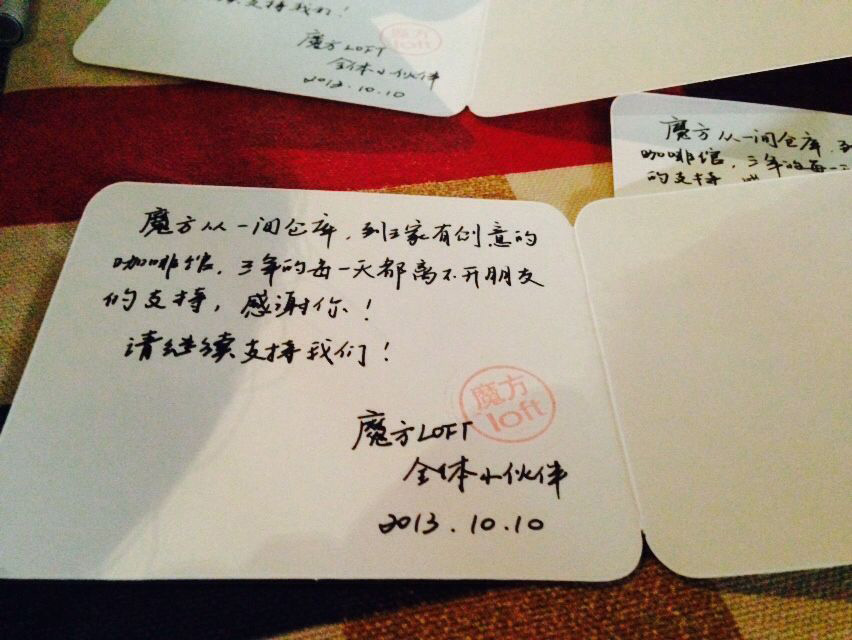 续支持我们！
魔方LOFT
魔方
loft
全体小伙伴
2013.10.10
魔方从一间仓库，到
咖啡馆，三年的每一
的支持，
魔方从一间仓库，到3家有创意的
咖啡馆，三年的每一天都离不开朋友
们的支持，感谢你！
请继续支持我们！
魔方
loft
魔方LOFT
全体小伙伴
2013.10.10